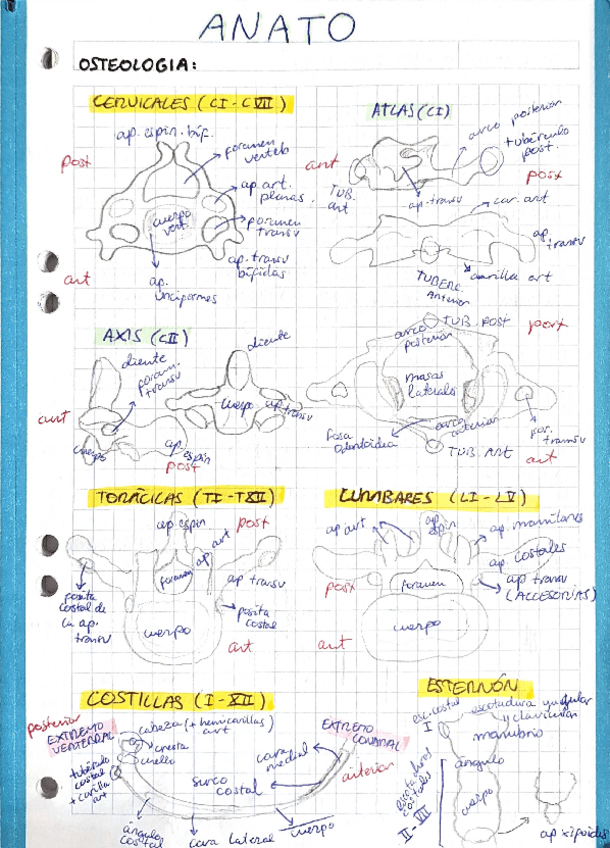 ANATO
OSTEOLOGIA:
CERVICALES (CI-CVII)
ap. espin. bif.
foramen
verteb
post
ap. art.
planas.
cuerpo
vert.
foramen
transv
ap. transv
bífidas
ap.
unciformes
ant
ATLAS (CI)
arco posterior
tubérculo
post.
ant
post
TUB.
ant
ap. transv
car. art
ap.
transv
TUBERC.
Anterior
carilla art
AXIS (CII)
diente
foram.
transv
ant
cuerpo
ap.
espin
post
diente
cuerpo
ap. transv
TUB. POST
post
arco
posterior
masas
laterales
fosa
odontoidea
arco
anterior
for.
transv
TUB. ANT
ant
TORÁCICAS (TI-TXII)
ap espin
post
ap art
foramen
ap transv
posita
costal de
la ap.
transv
posita
costal
cuerpo
ant
LUMBARES (LI-LV)
ap art
ap.
espin
ap. mamilares
ap. costales
post
foramen
ap transv
(ACCESORIAS)
cuerpo
ant
COSTILLAS (I-XII)
posterior
EXTREMO
VERTEBRAL
cabeza (+ hemicarillas)
art
cresta
cuello
tubérculo
costal
+ carilla
art
surco
costal
cara
medial
EXTREMO
anterior
ángulo
costal
cara lateral
cuerpo
ESTERNÓN
esc. costal
I
escotadura yugular
y clavicular
manubrio
ángulo
cuerpo
II-VII
ap xifoides